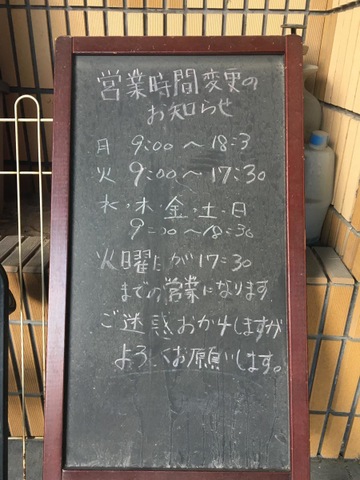 営業時間変更の
お知らせ
月 9:00〜18:3
火 9:00〜17:30
水・木・金・土・日
9:00〜18:30
火曜だけが17:30
までの営業になります
ご迷惑おかけしますが
よろしくお願いします。